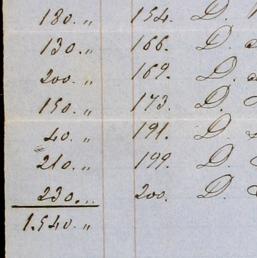 180. „ 154. D.
130. „ 166. D.
200. „ 169. D.
150. „ 173. D.
40. „ 191. D.
210. „ 199. D.
230. „ 200. D.
1.540 „